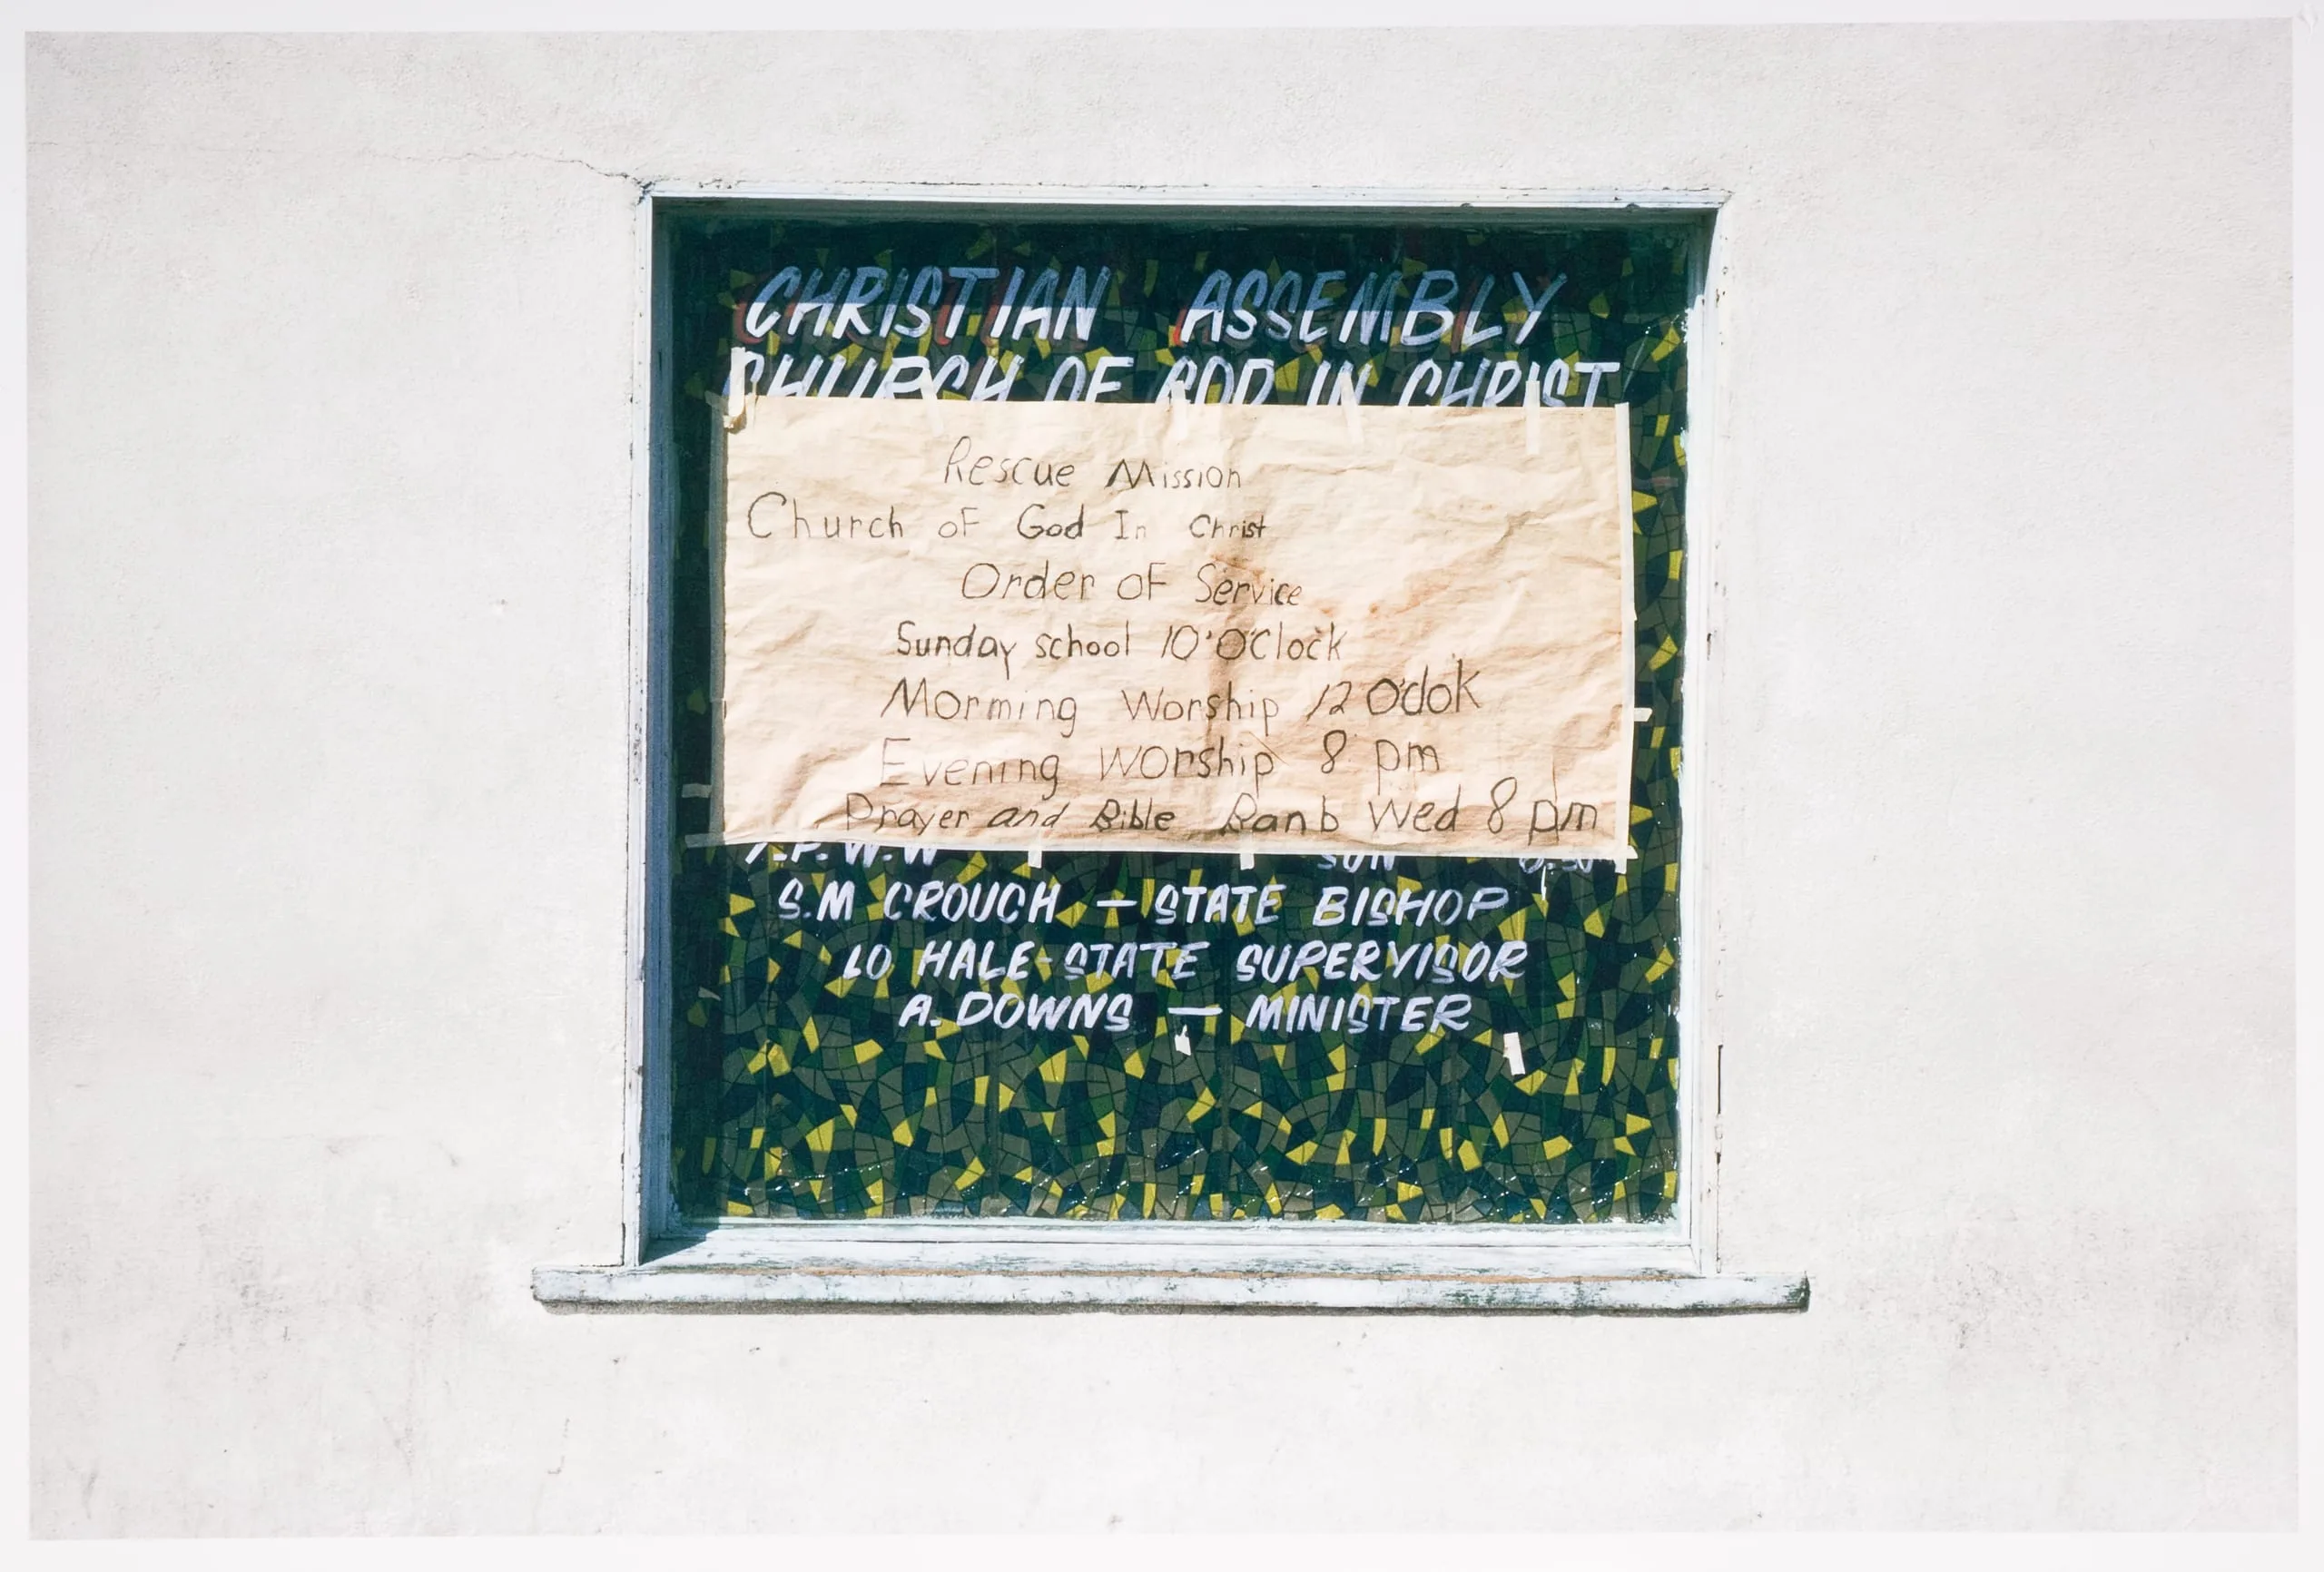 CHRISTIAN ASSEMBLY
CHURCH OF GOD IN CHRIST
Rescue Mission
Church of God In Christ
Order of Service
Sunday school 10'O'Clock
Morming Worship 12 O'clok
Evening Worship 8 pm
Prayer and Bible Banb Wed 8 pm
Y.P.W.W SUN
S.M CROUCH — STATE BISHOP
LO HALE-STATE SUPERVISOR
A. DOWNS — MINISTER